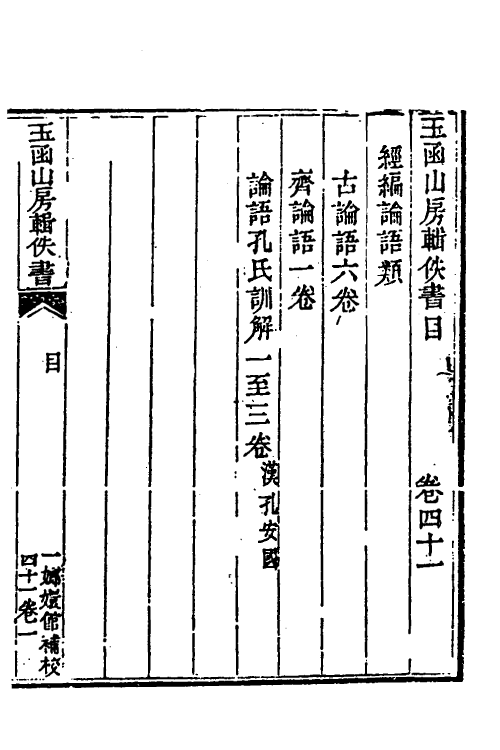 玉函山房輯佚書目　卷四十一
經編論語類
古論語六卷
齊論語一卷
論語孔氏訓解一至三卷 漢孔安國
玉函山房輯佚書　目　一
嫏嬛館補校
四十一卷一